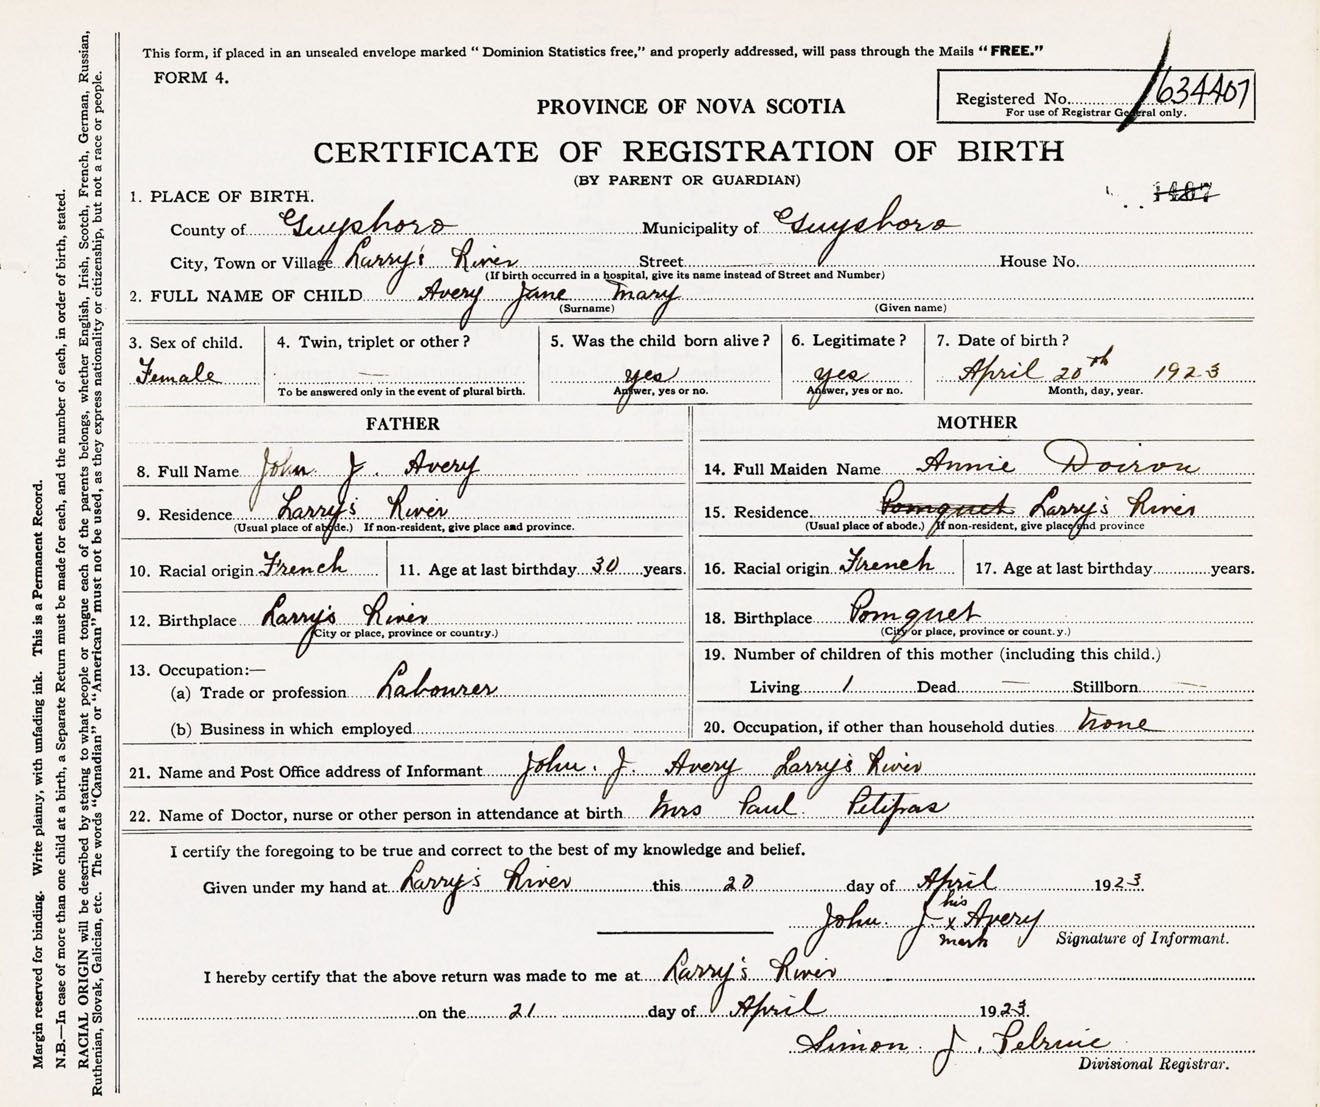 This form, if placed in an unsealed envelope marked " Dominion Statistics free," and properly addressed, will pass through the Mails "FREE."
FORM 4.
Registered No. 634407
For use of Registrar General only.
PROVINCE OF NOVA SCOTIA
CERTIFICATE OF REGISTRATION OF BIRTH
(BY PARENT OR GUARDIAN)
1. PLACE OF BIRTH.
County of Guysboro Municipality of Guysboro
City, Town or Village Larry's River Street House No.
(If birth occurred in a hospital, give its name instead of Street and Number)
2. FULL NAME OF CHILD Avery Jane Mary
(Surname) (Given name)
3. Sex of child. 4. Twin, triplet or other? 5. Was the child born alive? 6. Legitimate? 7. Date of birth?
Female — yes yes April 20th 1923
To be answered only in the event of plural birth. Answer, yes or no. Answer, yes or no. Month, day, year.
FATHER MOTHER
8. Full Name John J. Avery 14. Full Maiden Name Annie Doiron
9. Residence Larry's River 15. Residence Pomquet Larry's River
(Usual place of abode.) If non-resident, give place and province. (Usual place of abode.) If non-resident, give place and province
10. Racial origin French 11. Age at last birthday 30 years. 16. Racial origin French 17. Age at last birthday years.
12. Birthplace Larry's River 18. Birthplace Pomquet
(City or place, province or country.) (City or place, province or count.y.)
19. Number of children of this mother (including this child.)
13. Occupation:—
(a) Trade or profession Labourer Living 1 Dead — Stillborn —
(b) Business in which employed 20. Occupation, if other than household duties none
21. Name and Post Office address of Informant John. J. Avery Larry's River
22. Name of Doctor, nurse or other person in attendance at birth Mrs Paul Petipas
I certify the foregoing to be true and correct to the best of my knowledge and belief.
Given under my hand at Larry's River this 20 day of April 1923.
his
John J. x Avery
mark Signature of Informant.
I hereby certify that the above return was made to me at Larry's River
on the 21 day of April 1923.
Simon J. Pelrine
Divisional Registrar.
Margin reserved for binding. Write plainly, with unfading ink. This is a Permanent Record.
N.B.—In case of more than one child at a birth, a Separate Return must be made for each, and the number of each, in order of birth, stated.
RACIAL ORIGIN will be described by stating to what people or tongue each of the parents belongs, whether English, Irish, Scotch, French, German, Russian,
Ruthenian, Slovak, Galician, etc. The words "Canadian" or "American" must not be used, as they express nationality or citizenship, but not a race or people.